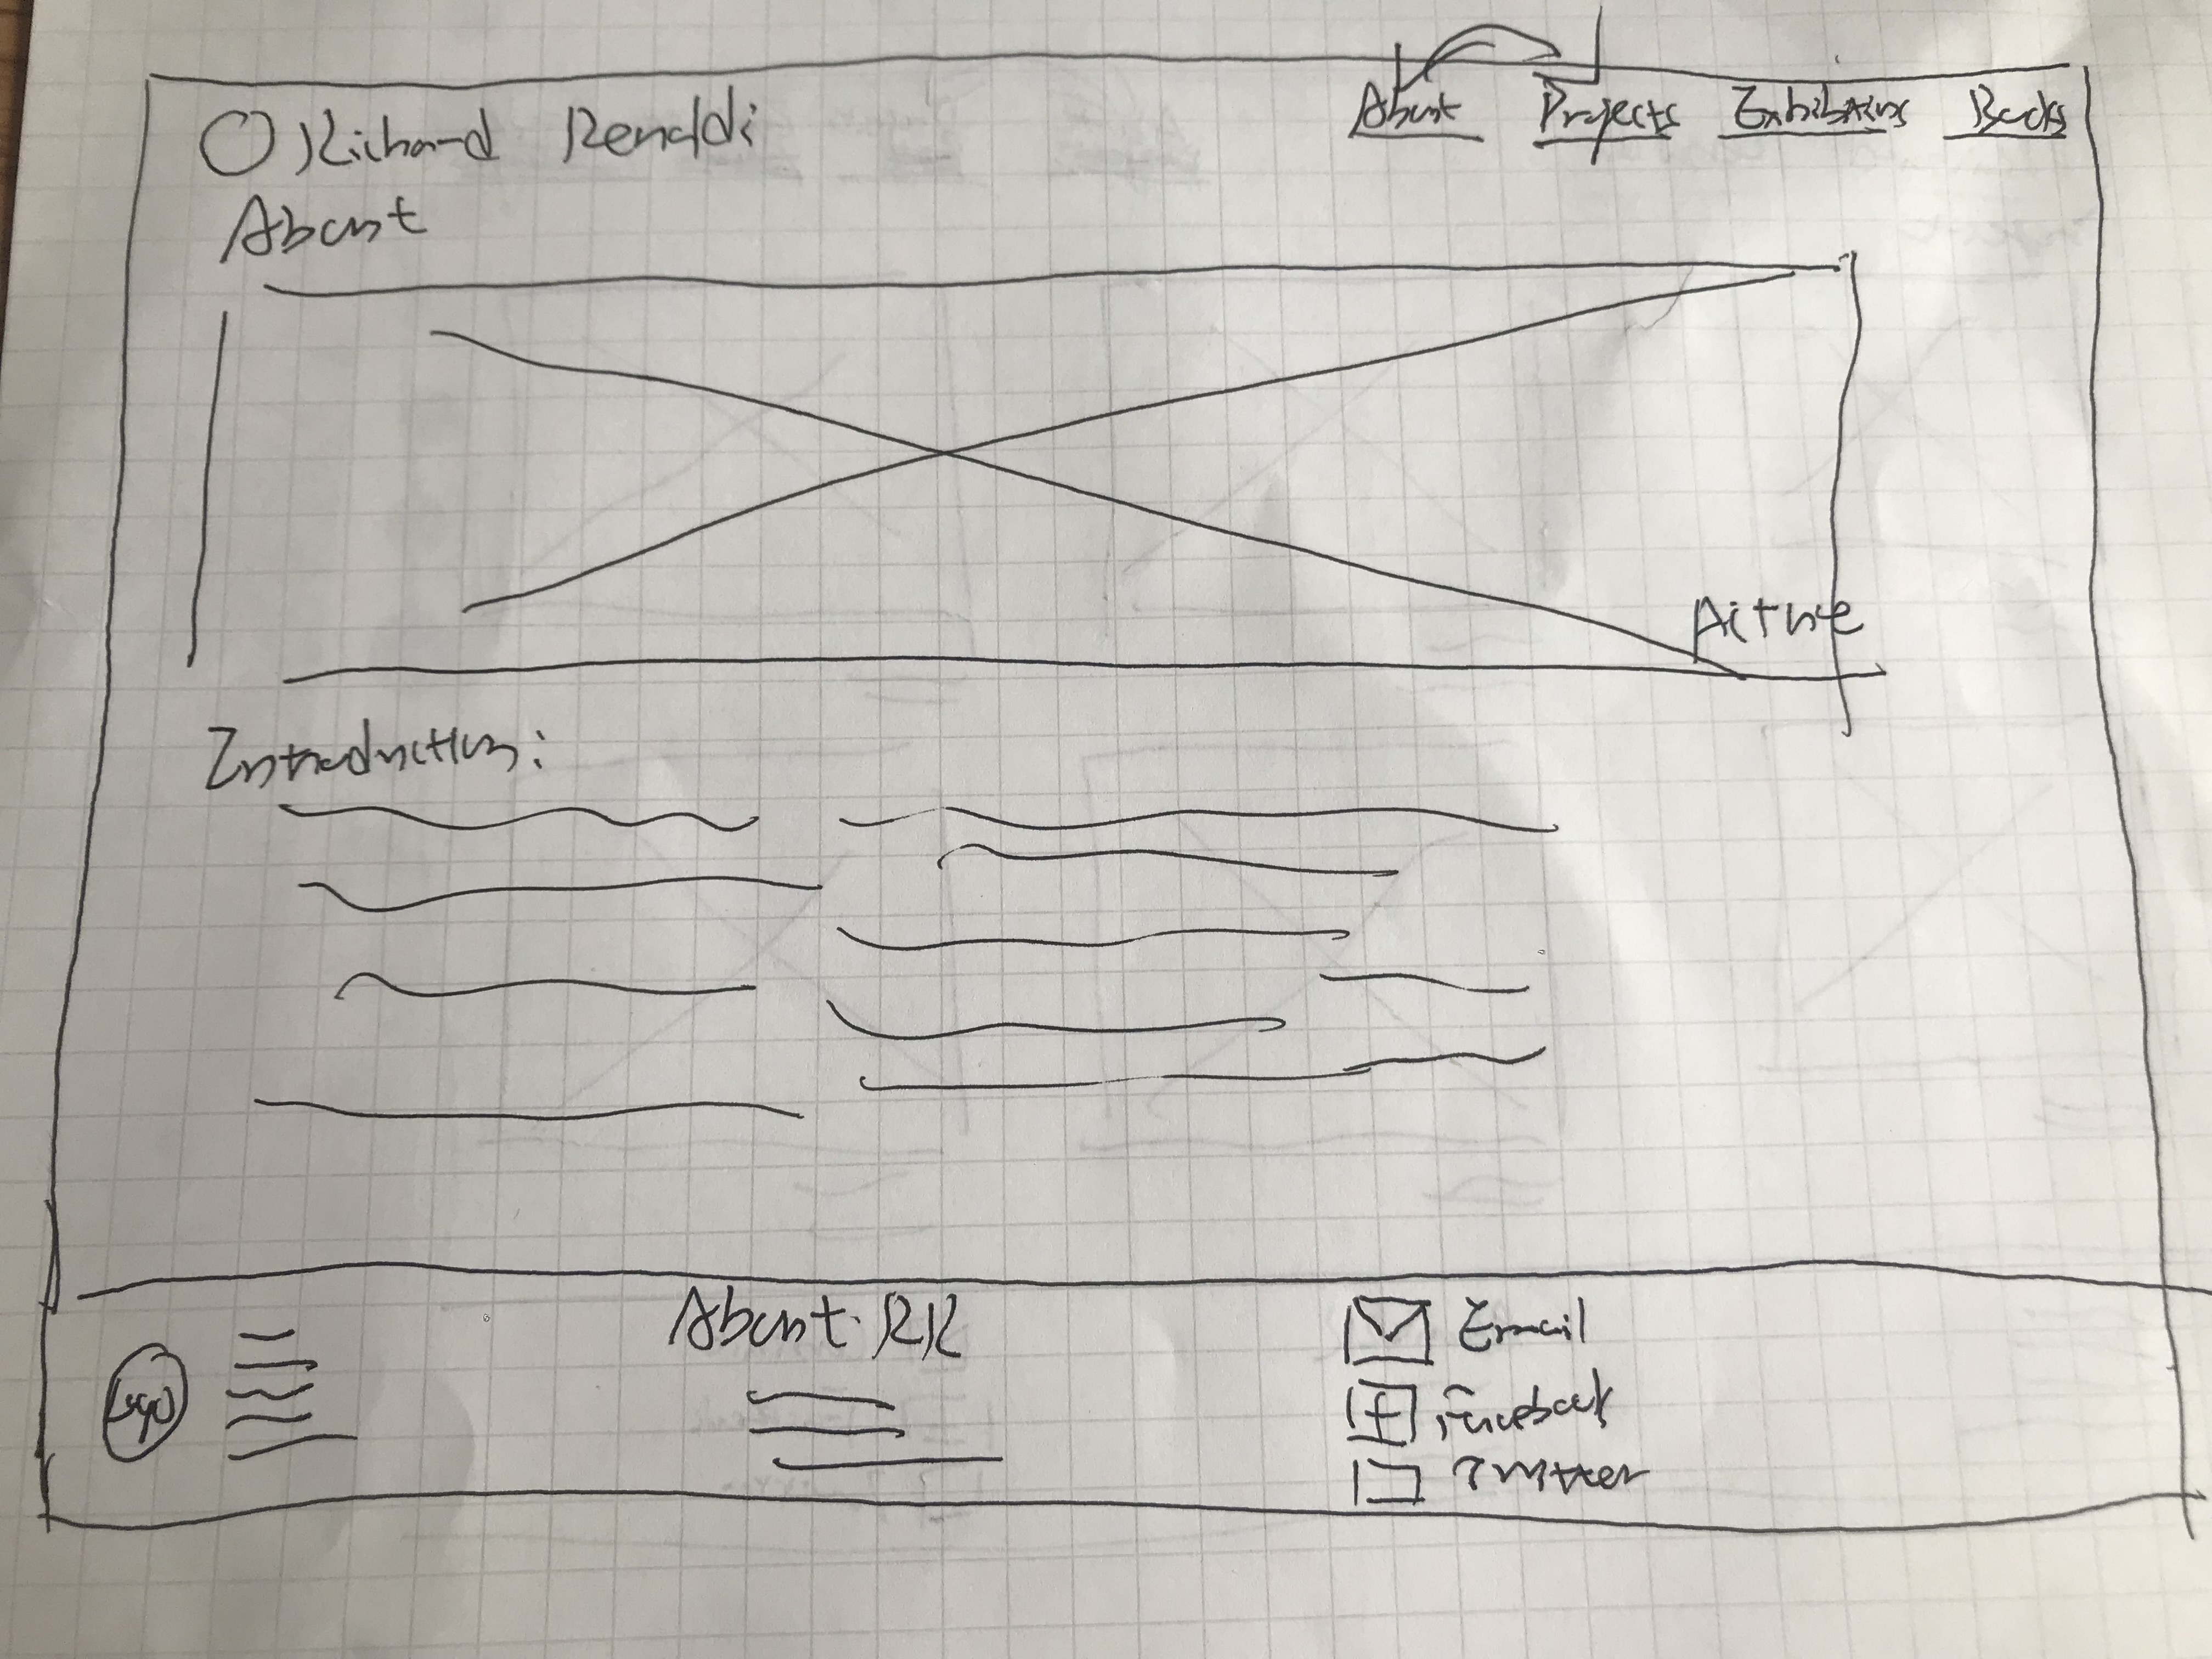 Richard Renaldi
About Projects Exhibitions Books
About
Picture
Introduction:
Logo
About RR
Email
Facebook
Twitter